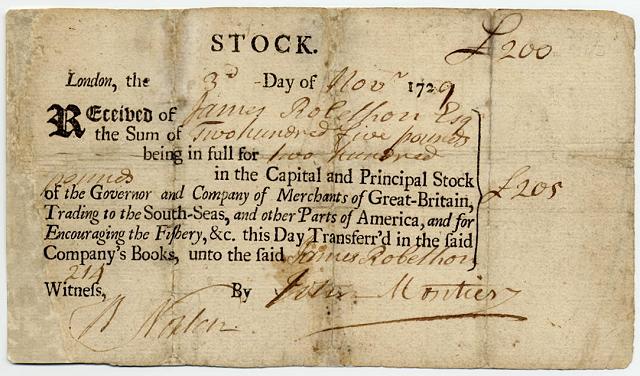 STOCK.
£ 200
London, the 3d Day of Novr 1729
REceived of James Robethon Esq
the Sum of Two hundred five pounds
being in full for two hundred
pounds in the Capital and Principal Stock
£ 205
of the Governor and Company of Merchants of Great-Britain,
Trading to the South-Seas, and other Parts of America, and for
Encouraging the Fishery, &c. this Day Transferr'd in the said
Company's Books, unto the said James Robethon
Witness, By John